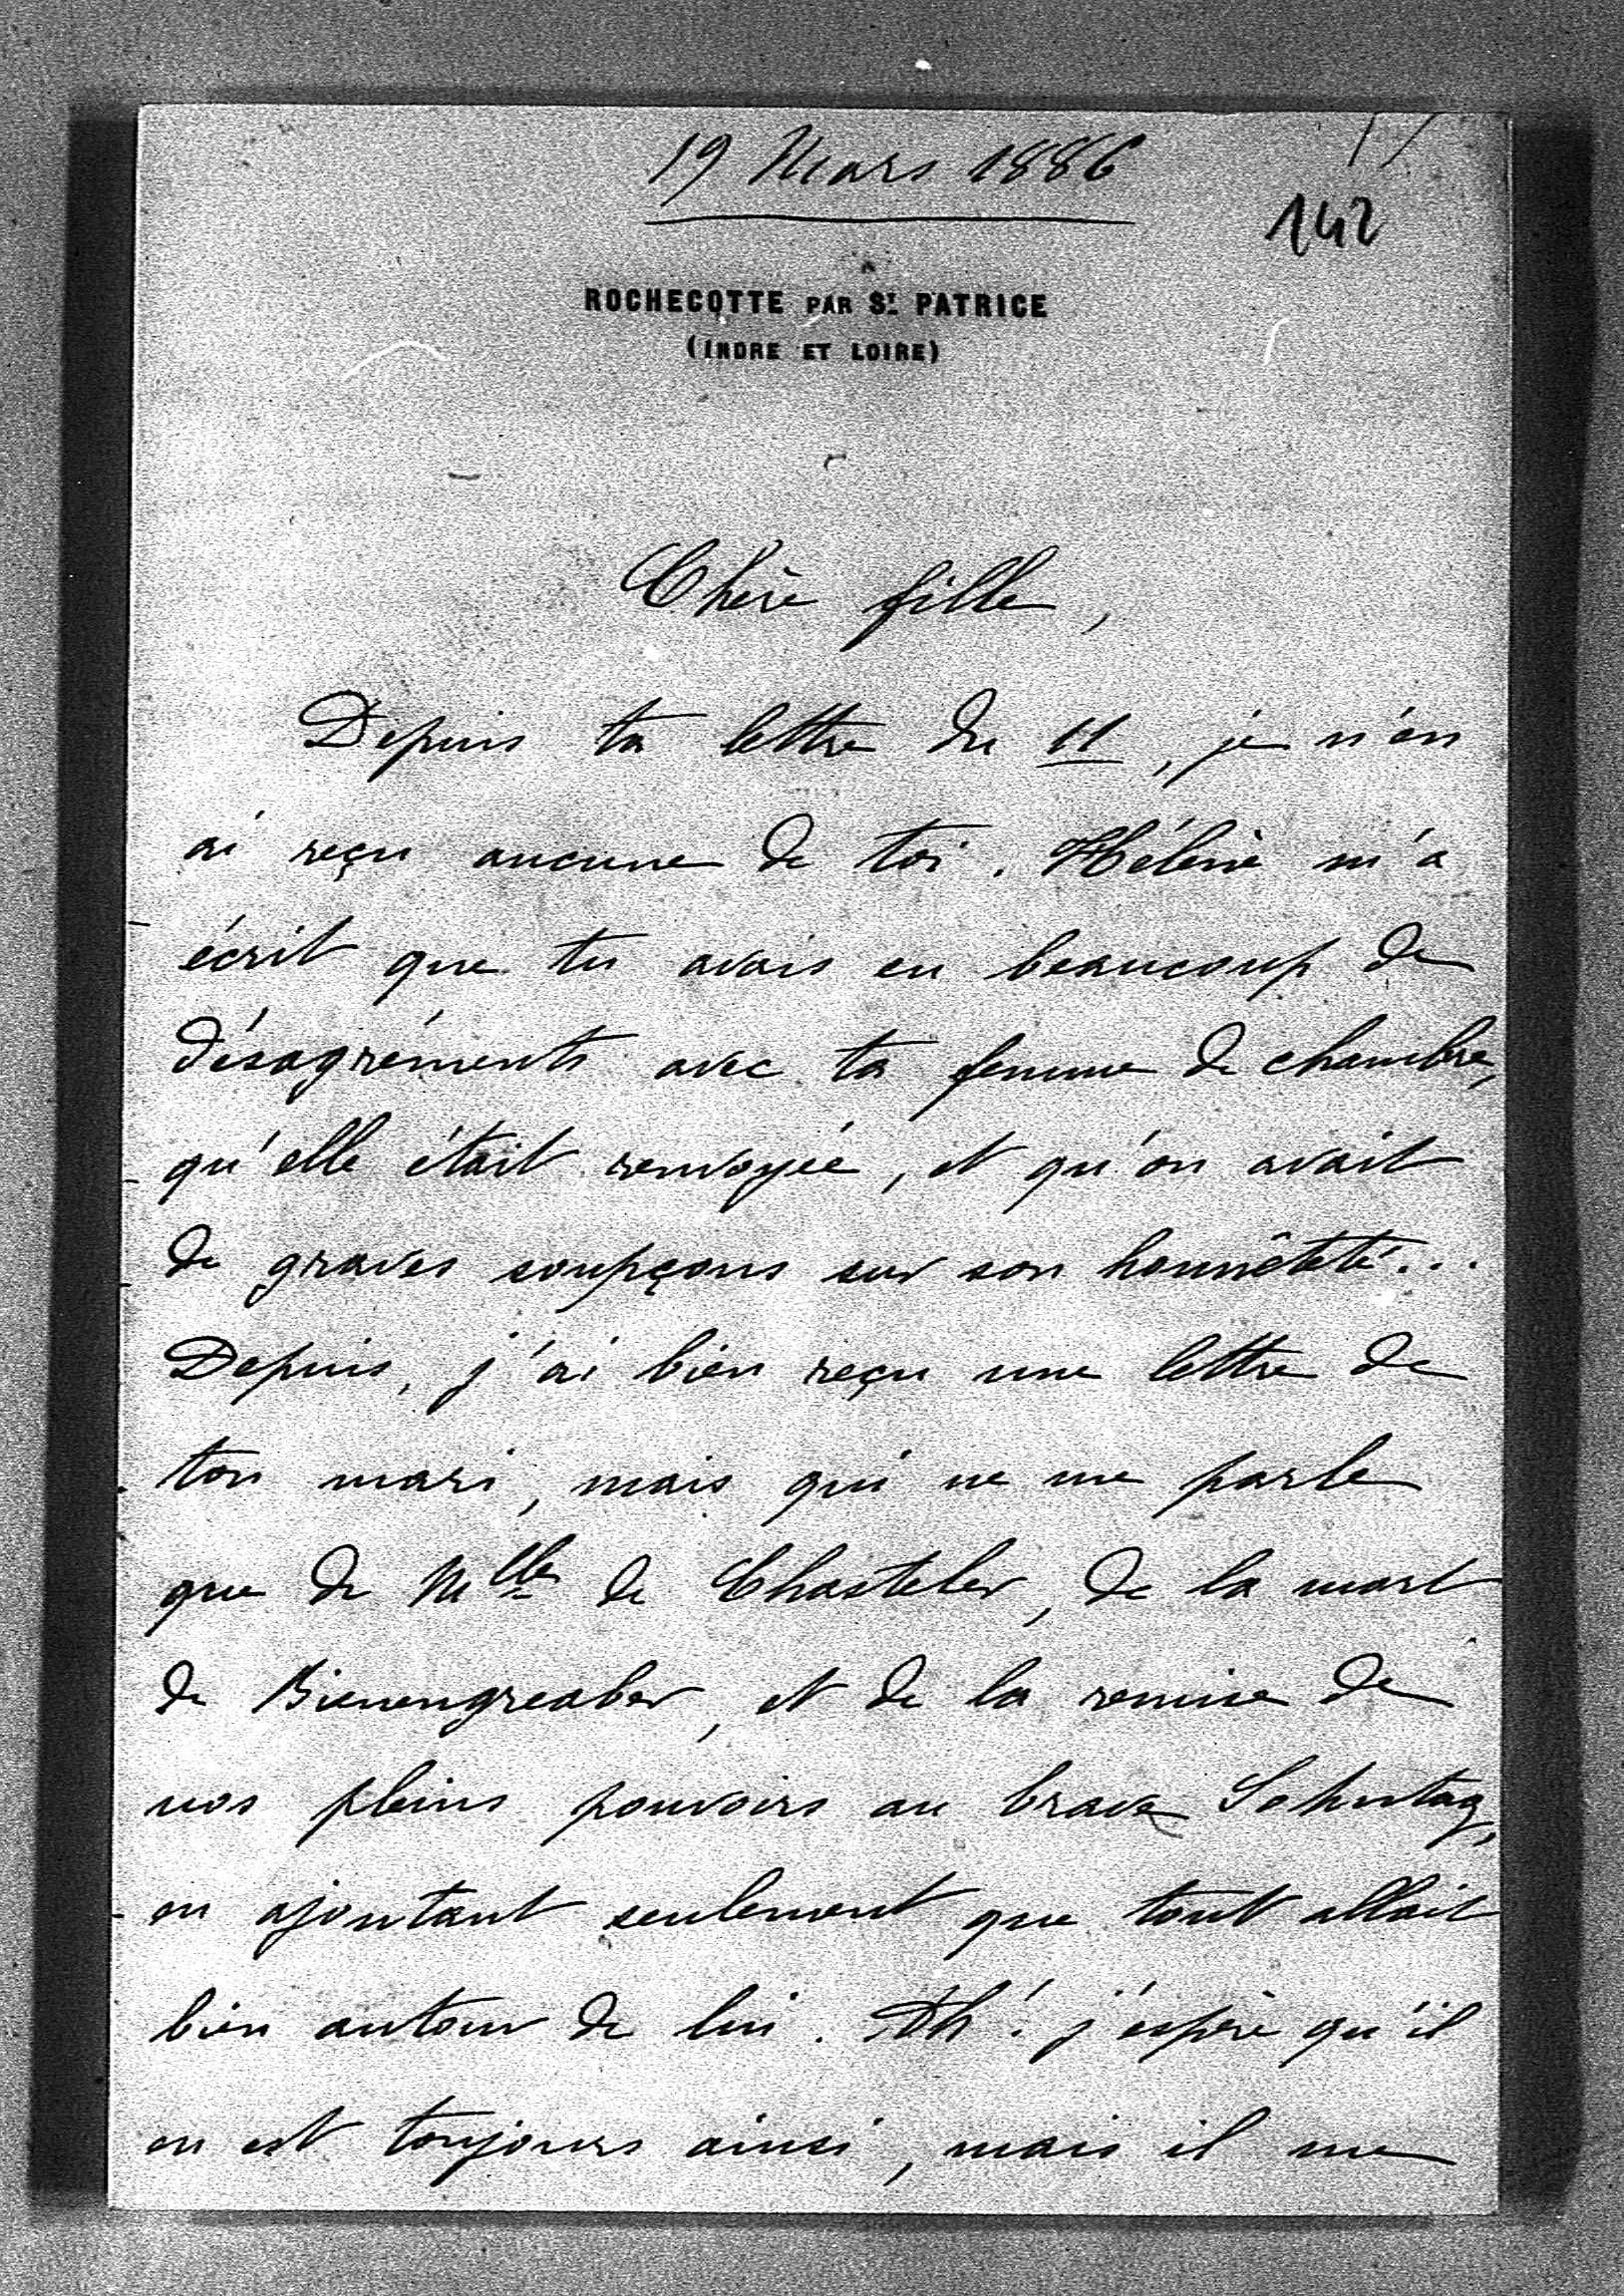 19 Mars 1886
142
ROCHECOTTE PAR ST PATRICE
(INDRE ET LOIRE)
Chère fille,
Depuis ta lettre du 11, je n'en
ai reçu aucune de toi. Hélène m'a
écrit que tu avais eu beaucoup de
désagréments avec ta femme de chambre,
qu'elle était renvoyée, et qu'on avait
de graves soupçons sur son honnêteté...
Depuis, j'ai bien reçu une lettre de
ton mari, mais qui ne me parle
que de Mlle de Chasteler, de la mort
de Bienengreaber, et de la remise de
nos pleins pouvoirs au brave Sohntag,
en ajoutant seulement que tout allait
bien autour de lui. Ah! j'espère qu'il
en est toujours ainsi, mais il me